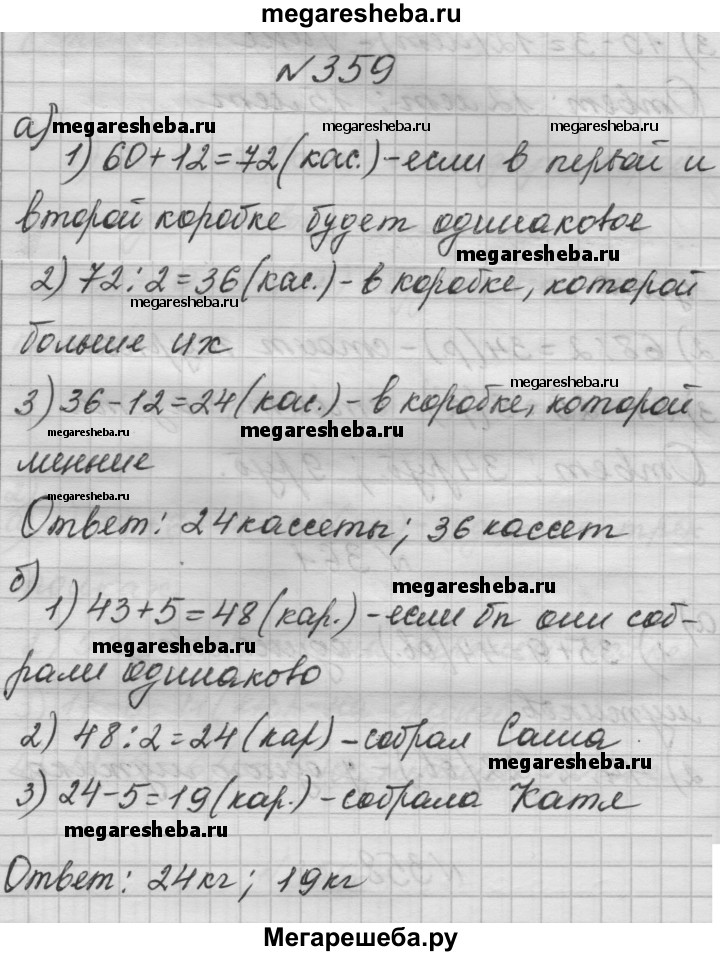 megaresheba.ru
№359
а) megaresheba.ru megaresheba.ru megaresheba.ru
1) 60+12=72(кас.)-если в первой и
второй коробке будет одинаковое
megaresheba.ru
2) 72:2=36(кас.)-в коробке, которой
megaresheba.ru
больше их
megaresheba.ru
3) 36-12=24(кас.)-в коробке, которой
megaresheba.ru megaresheba.ru
меньше
megaresheba.ru
Ответ: 24 кассеты; 36 кассет
б) megaresheba.ru
1) 43+5=48(кар.)-если бы они соб-
megaresheba.ru
рали одинаково
2) 48:2=24(кар)-собрал Саша
megaresheba.ru
3) 24-5=19(кар.)-собрала Катя
megaresheba.ru
Ответ: 24кг; 19кг
Мегарешеба.ру